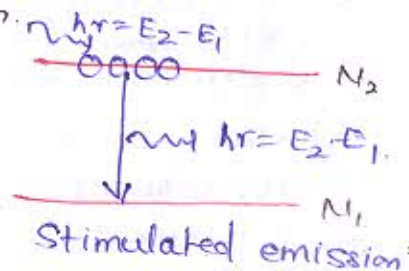 hr = E₂-E₁
N₂
hr = E₂-E₁.
N₁
Stimulated emission